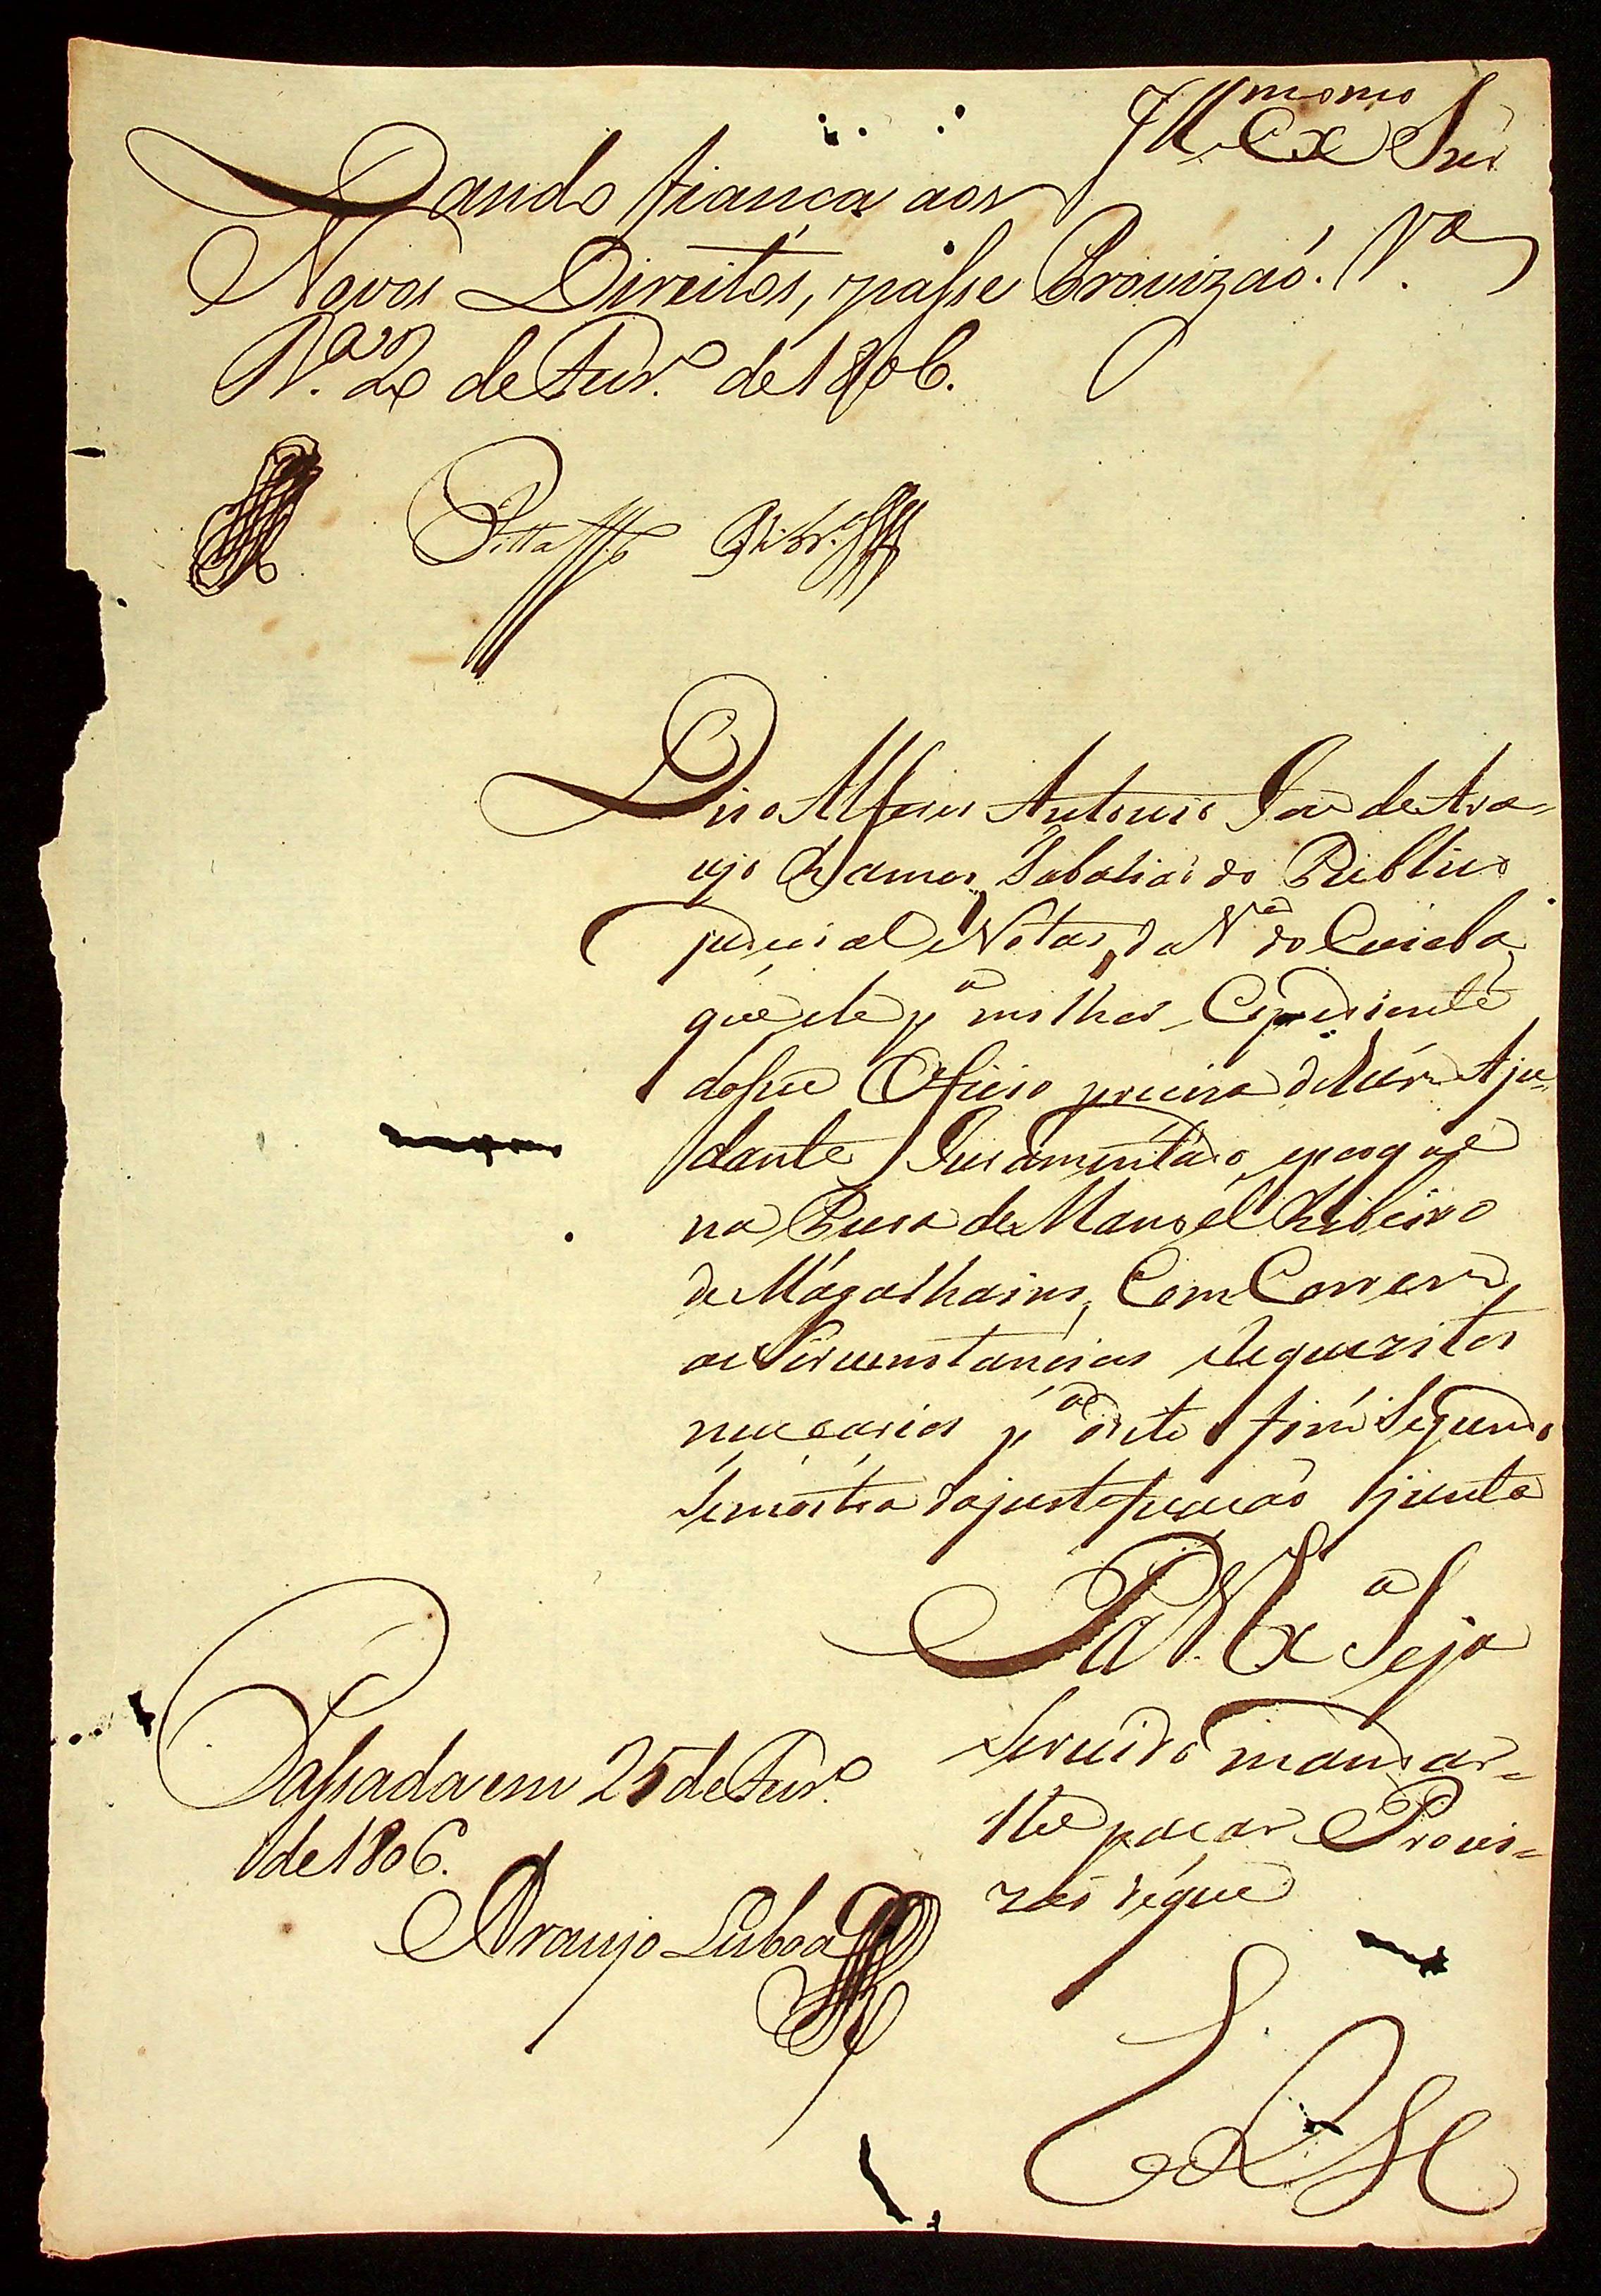 Ill.mo Ex.mo Snr
Dando fiança aos
Novos Direitos, passe Provizaó. V.a
B.a 20 de Fevr.o de 1806.
Pitta
Diz o Alferes Antonio Joze de Ara-
ujo Ramos, Tabaliaõ do Publico
judicial e Notas, da V.a do Cuiaba,
que ele p.a milhor Expediente
do seu Oficio preciza de hum Aju-
dante Juramentado, e porque
na Pesoa de Manoel Ribeiro
de Magalhains, Com Correm,
as Sircunstancias e Requezitos
necearios p.a este fim Segundo
Se mostra da justeficacaõ junta
P. a V. Ex.a Seja
Servido mandar-
lhe pacar Provi-
zaõ deque
Passada em 25 de Fevr.o
de 1806.
Araujo Lisboa
E R M